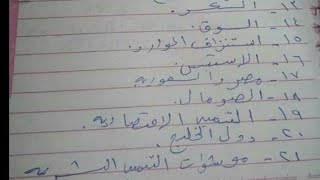 ١٤- السوق.
١٥- استنزاف الموارد
١٦- الاستنسا
١٧- مصر والسعودية.
١٨- الصومال.
١٩- التنمية الاقتصادية.
٢٠- دول الخليج.
٢١- مؤشرات التنمية البشرية